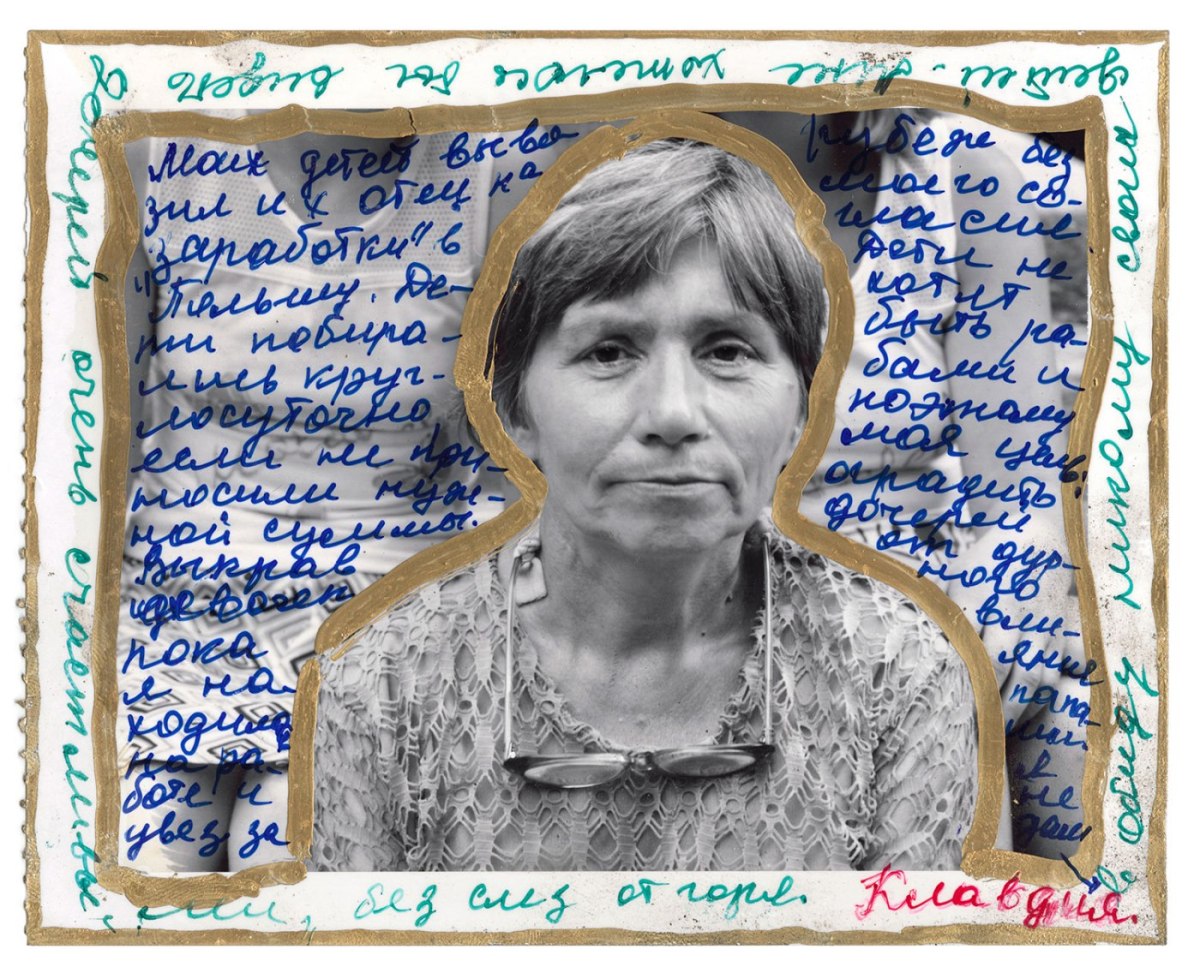 Моих детей выво
зил их отец на
"заработки" в
Польшу. Де-
ти побира-
лись круг-
лосуточно
если не при-
носили нуж-
ной суммы.
Выкрав
девочек
пока
я на
ходила
на ра-
боте и
увез за
рубеж без
моего со-
гласия
Дети не
хотят
быть ра-
бами и
поэтому
моя цель:
оградить
дочерей
от дур-
ного
вли-
яния
папа-
ши.
Я
не
дам
в обиду никому своих
детей. Мне хотелось бы видеть
Дочерей очень счастливы-
ми, без слез от горя.
Клавдия.